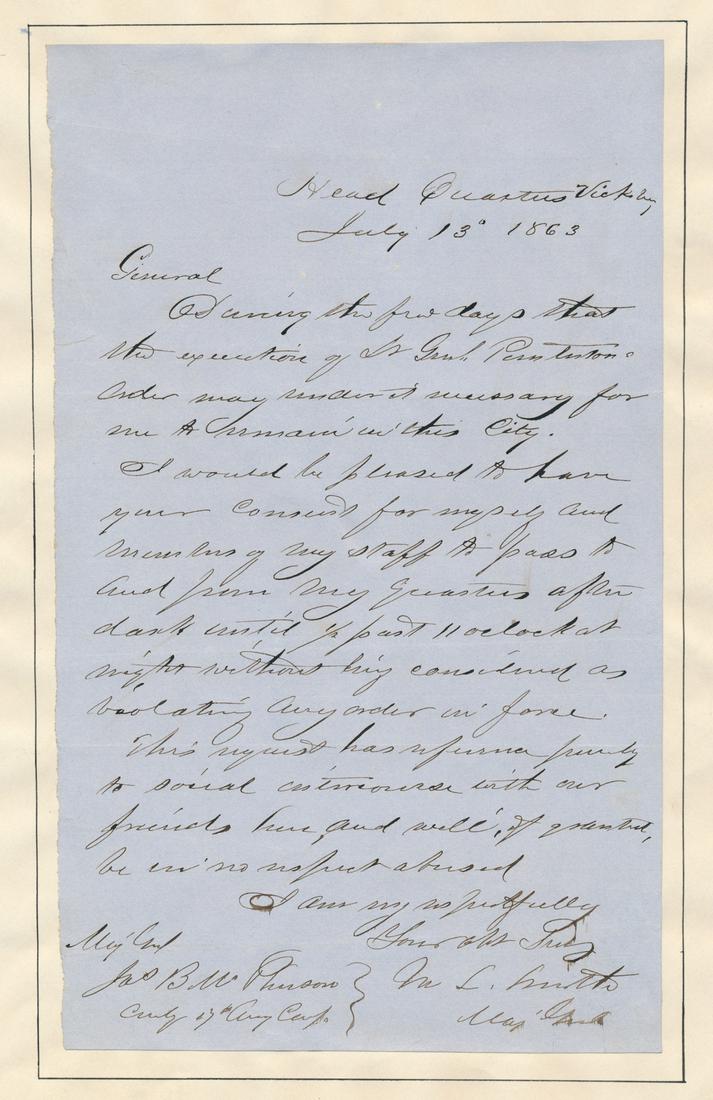 Head Quarters Vicksburg
July 13th 1863
General
During the few days that
the execution of Lt Genl. Pembertons
order may render it necessary for
me to remain in this City.
I would be pleased to have
your consent for myself and
members of my staff to pass to
and from my quarters after
dark until ½ past 11 oclock at
night without being considered as
violating any order in force.
This request has reference purely
to social intercourse with our
friends here, and will, if granted,
be in no respect abused
I am very respectfully
Your obt Srvt
Maj Genl
Jas B. McPherson } M. L. Smith
Comdg 17th Army Corps. Maj Genl